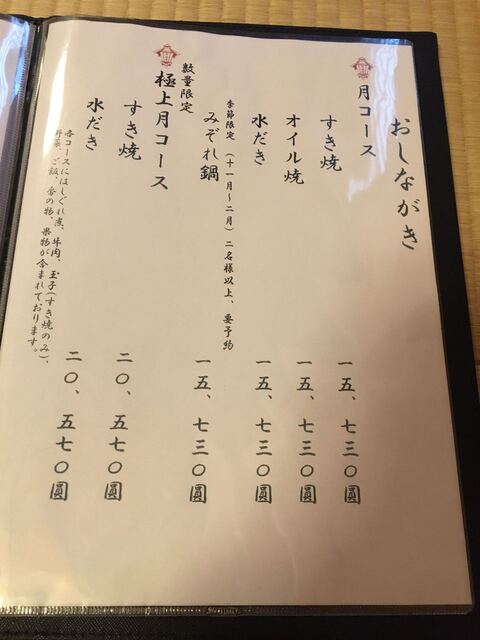 おしながき
月コース
すき焼 一五、七三〇圓
オイル焼 一五、七三〇圓
水だき 一五、七三〇圓
季節限定 (十一月～二月) 二名様以上、要予約
みぞれ鍋 一五、七三〇圓
数量限定
極上月コース
すき焼 二〇、五七〇圓
水だき 二〇、五七〇圓
各コースにはしぐれ煮、牛肉、玉子(すき焼のみ)、
野菜、ご飯、香の物、果物が含まれております。